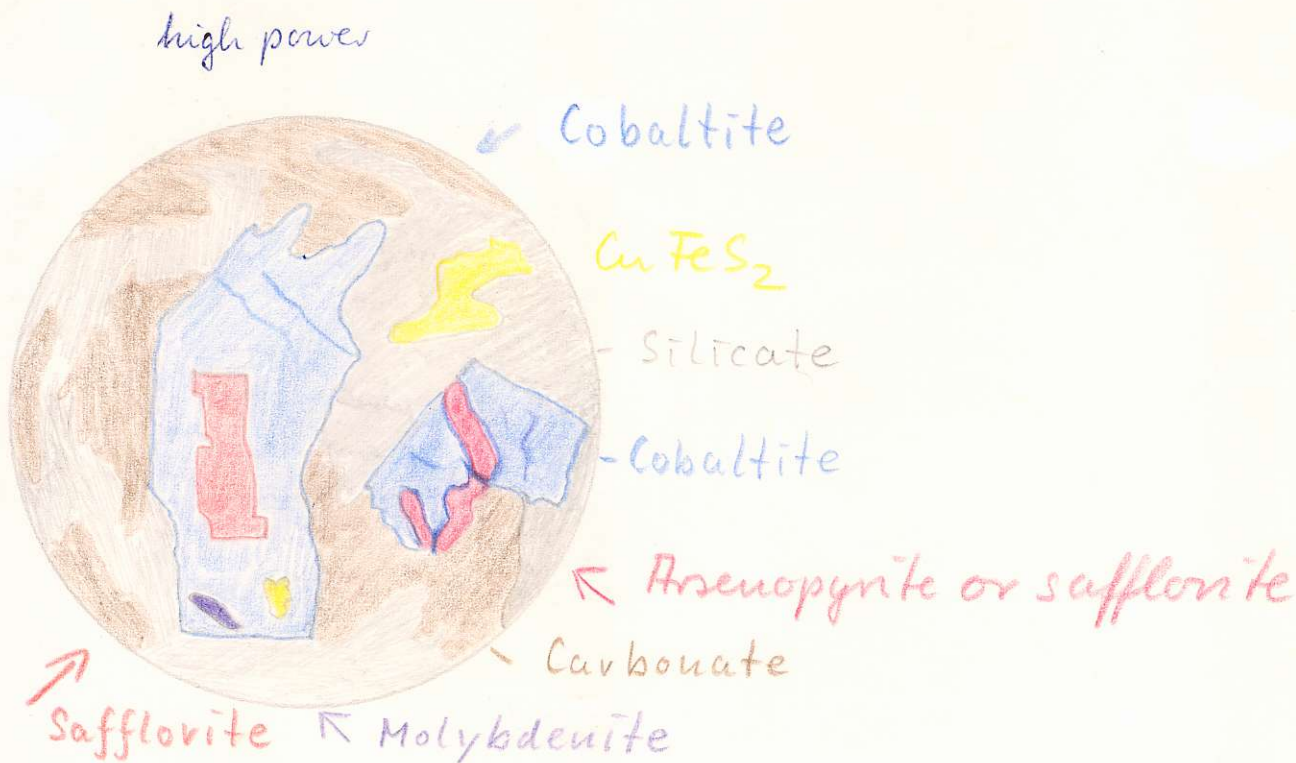 high power
Cobaltite
CuFeS₂
Silicate
Cobaltite
Arsenopyrite or safflorite
Carbonate
Safflorite
Molybdenite